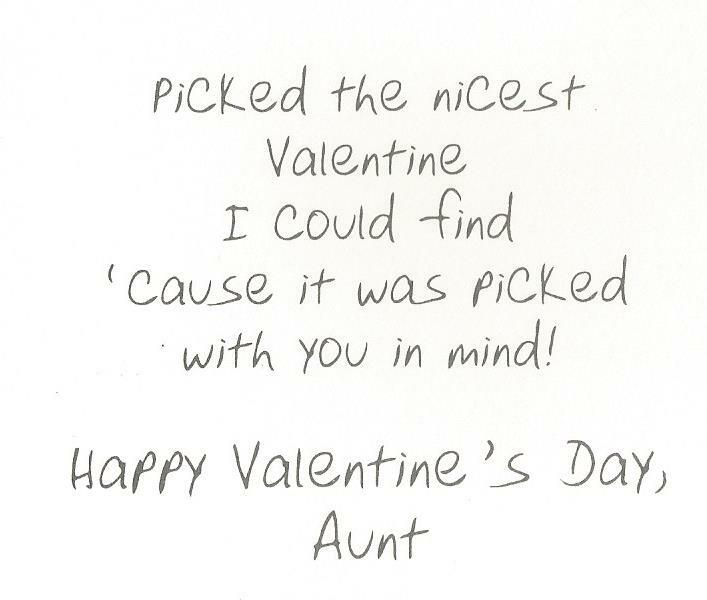 Picked the nicest
Valentine
I could find
'cause it was picked
with you in mind!
Happy Valentine's Day,
Aunt